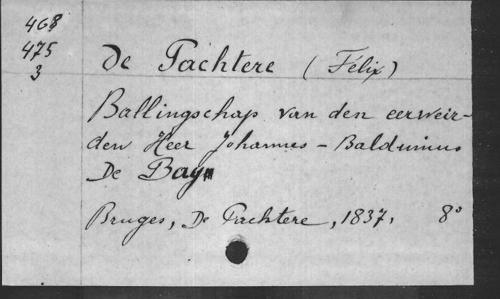 468
475
3
De Pachtere (Félix)
Ballingschap van den eerweir-
den Heer Johannes - Balduinus
De Bay
Bruges, De Pachtere, 1837, 8°